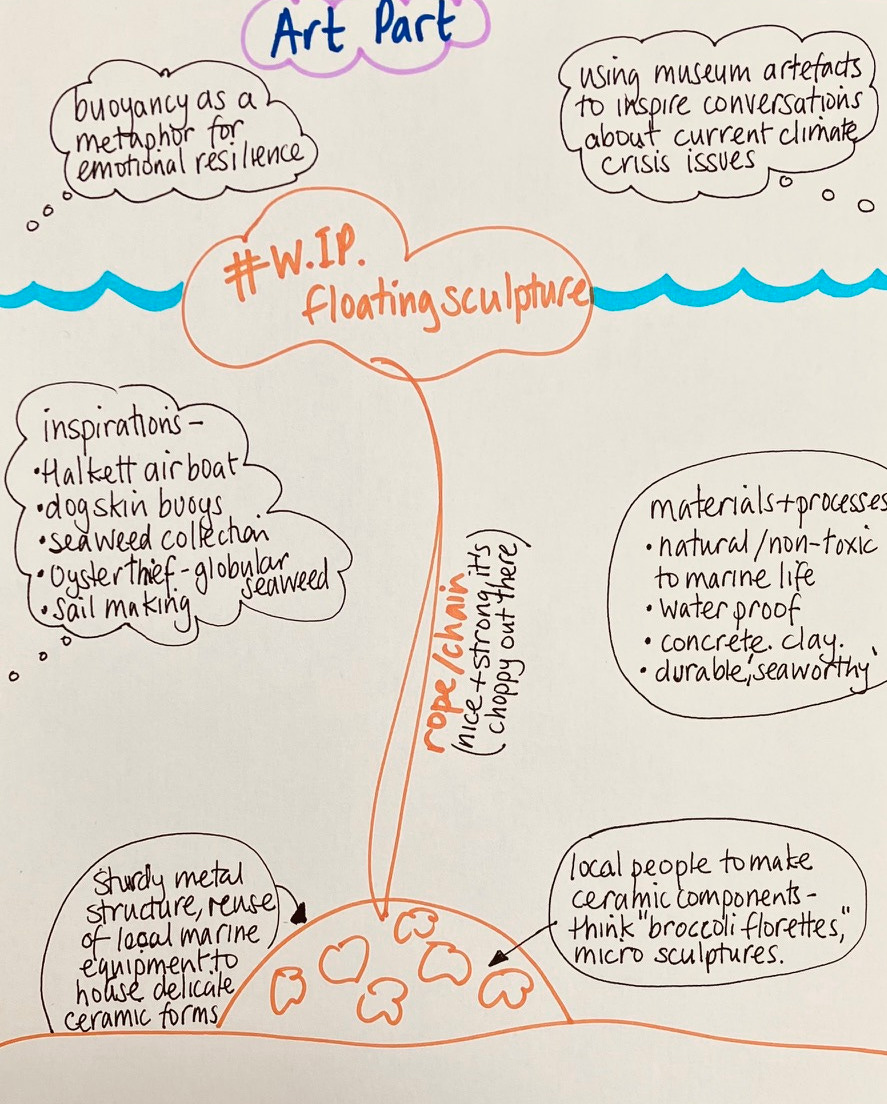 Art Part
buoyancy as a
metaphor for
emotional resilience
using museum artefacts
to inspire conversations
about current climate
crisis issues
#W.I.P.
floating sculpture
inspirations-
•Halkett air boat
•dogskin buoys
•seaweed collection
•Oyster thief-globular
seaweed
•sail making
materials+processes
•natural/non-toxic
to marine life
•water proof
•concrete. clay.
•durable, 'seaworthy'
rope/chain
(nice+strong, it's
choppy out there)
sturdy metal
structure, reuse
of local marine
equipment to
house delicate
ceramic forms
local people to make
ceramic components-
think "broccoli florettes,"
micro sculptures.